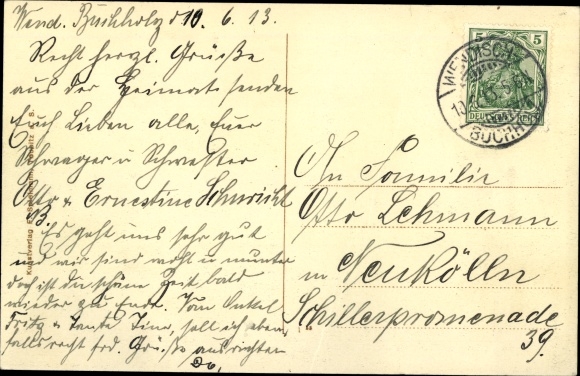 Wend. Buchholz d 10. 6. 13.
Recht herzl. Grüße
aus der Heimat senden
Euch Lieben alle, Euer
Schwager u Schwester
Otto & Ernestine
B.
Es geht uns sehr gut
und wir sind wohl u munter
doch ist die schöne Zeit bald
wieder zu Ende. Vom Onkel
Fritz & Tante Tine, soll ich eben
falls recht frd. Grüße ausrichten
Do.
An Familie
Otto Lehmann
in Neukölln
Schillerpromenade
39.
5 5
DEUTSCHES REICH
WENDISCH
BUCHH
Kunstverlag